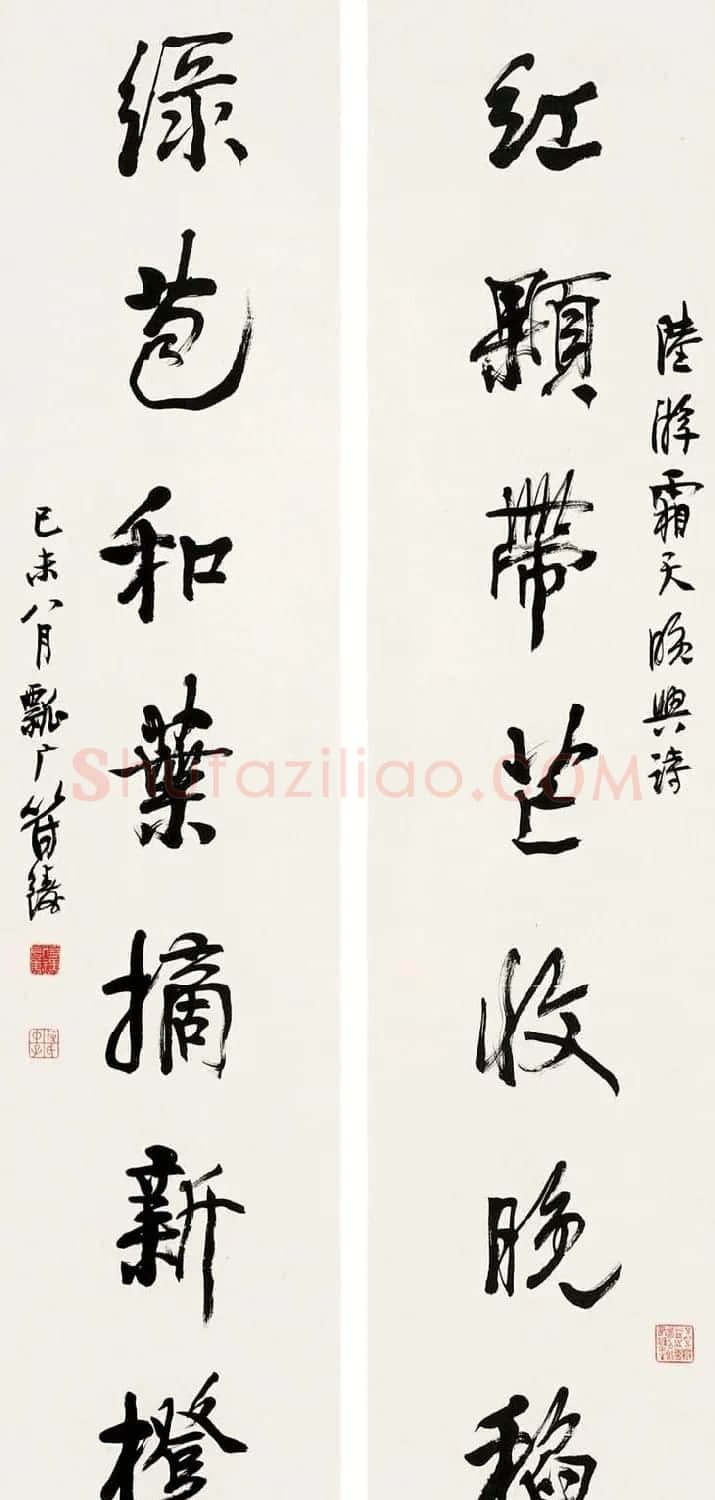 陸游霜天晚興诗
红顆帶芒收晚稻
綠苞和葉摘新橙
己未八月瓢广曾儔
Shufaziliao.COM